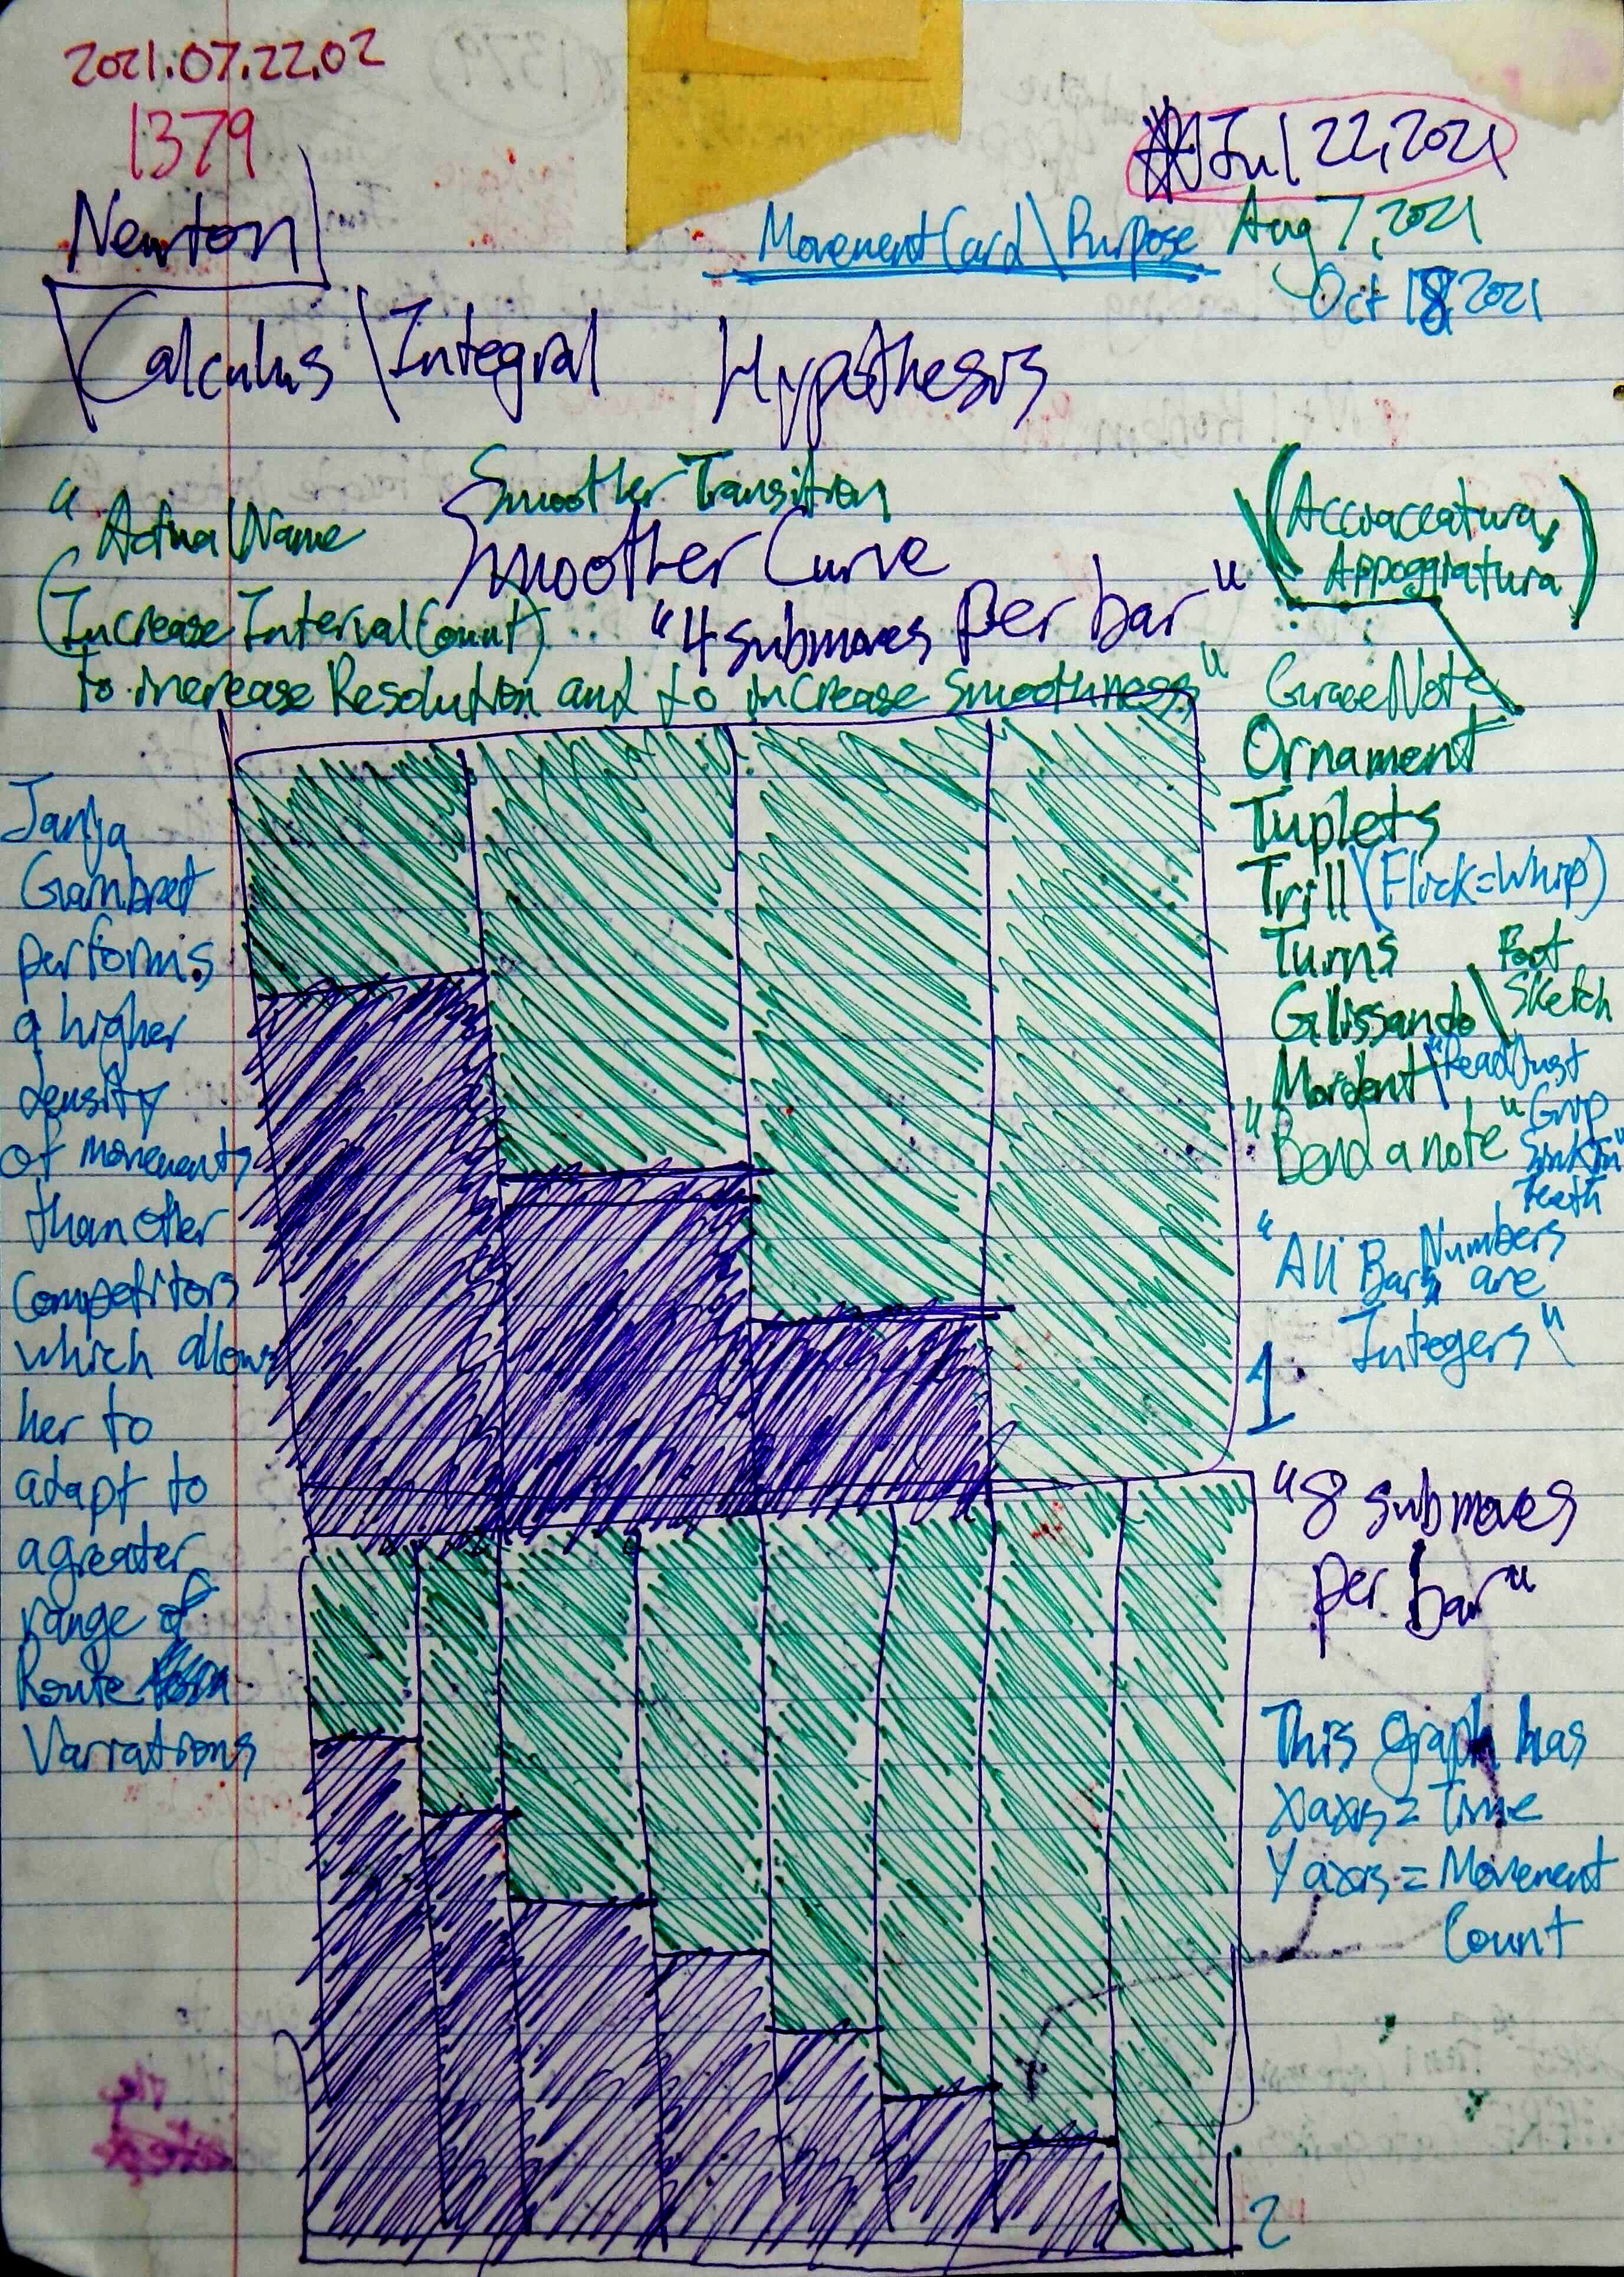 2021.07.22.02
1379
Jul 22, 2021
Newton
MovementCard\Purpose
Aug 7, 2021
Oct 18 2021
Calculus\Integral Hypothesis
Smoother Transition
"Actual Name
Smoother Curve
(Increase Interval Count)
"4 submoves per bar"
to increase Resolution and to increase smoothness"
(Acciaccatura,
Appoggiatura)
Grace Note
Ornament
Tuplets
Trill (Flick=Whip)
Turns
Glissando\Foot
Sketch
Mordent\"Readjust
Grip
"Bend a note"
Sink in
Teeth
"All Bar Numbers
are
Integers"
1
Janja
Gambret
performs
a higher
density
of movements
than other
Competitors
which allows
her to
adapt to
a greater
range of
Route
Variations
"8 submoves
per bar"
This Graph has
X axis = Time
Y axis = Movement
Count
2